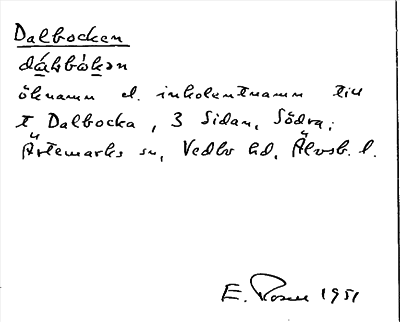 Dalbocken
dáḷbòkən
öknamn el. inkolentnamn till
t Dalbocka, 3 Sidan, Södra;
Ärtemarks sn, Vedbo hd, Älvsb. l.
E. Rosen 1951